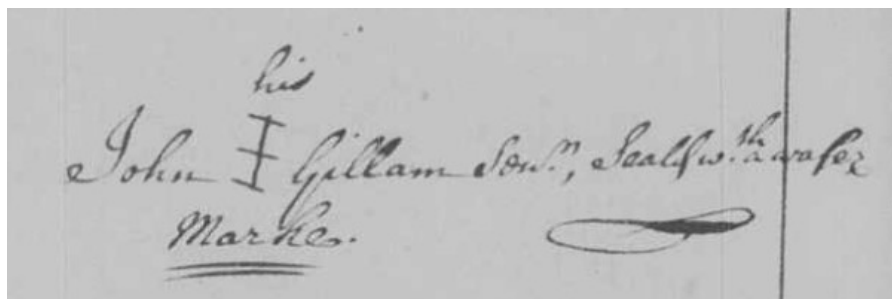 his
John Gillam Senr, Seald wth a wafer
Marke.